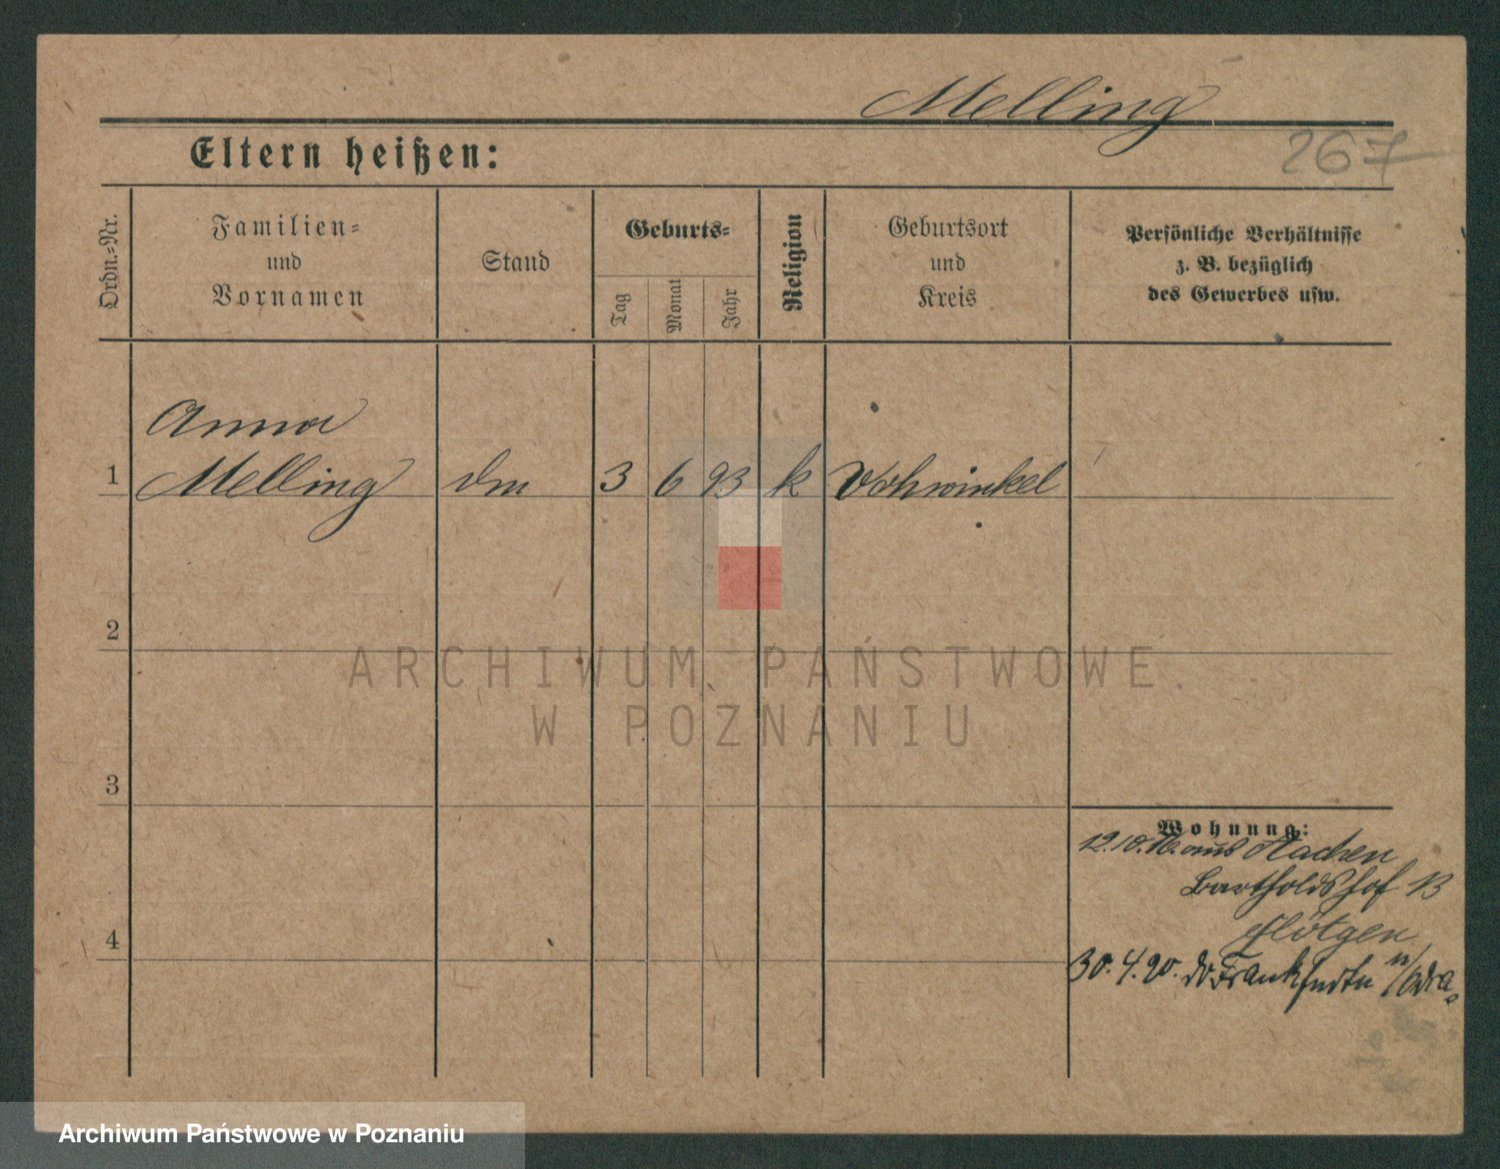 Melling
267
Eltern heißen:
Ordn.-Nr.
Familien-
und
Vornamen
Stand
Geburts-
Tag
Monat
Jahr
Religion
Geburtsort
und
Kreis
Persönliche Verhältnisse
z. B. bezüglich
des Gewerbes usw.
Anna
1 Melling 3 6 93 k Vohwinkel
2
ARCHIWUM PAŃSTWOWE
W POZNANIU
3
Wohnung:
12.10.16. aus Aachen
Bartholdshof 13
4
Flötgen
30.4.20.
Archiwum Państwowe w Poznaniu